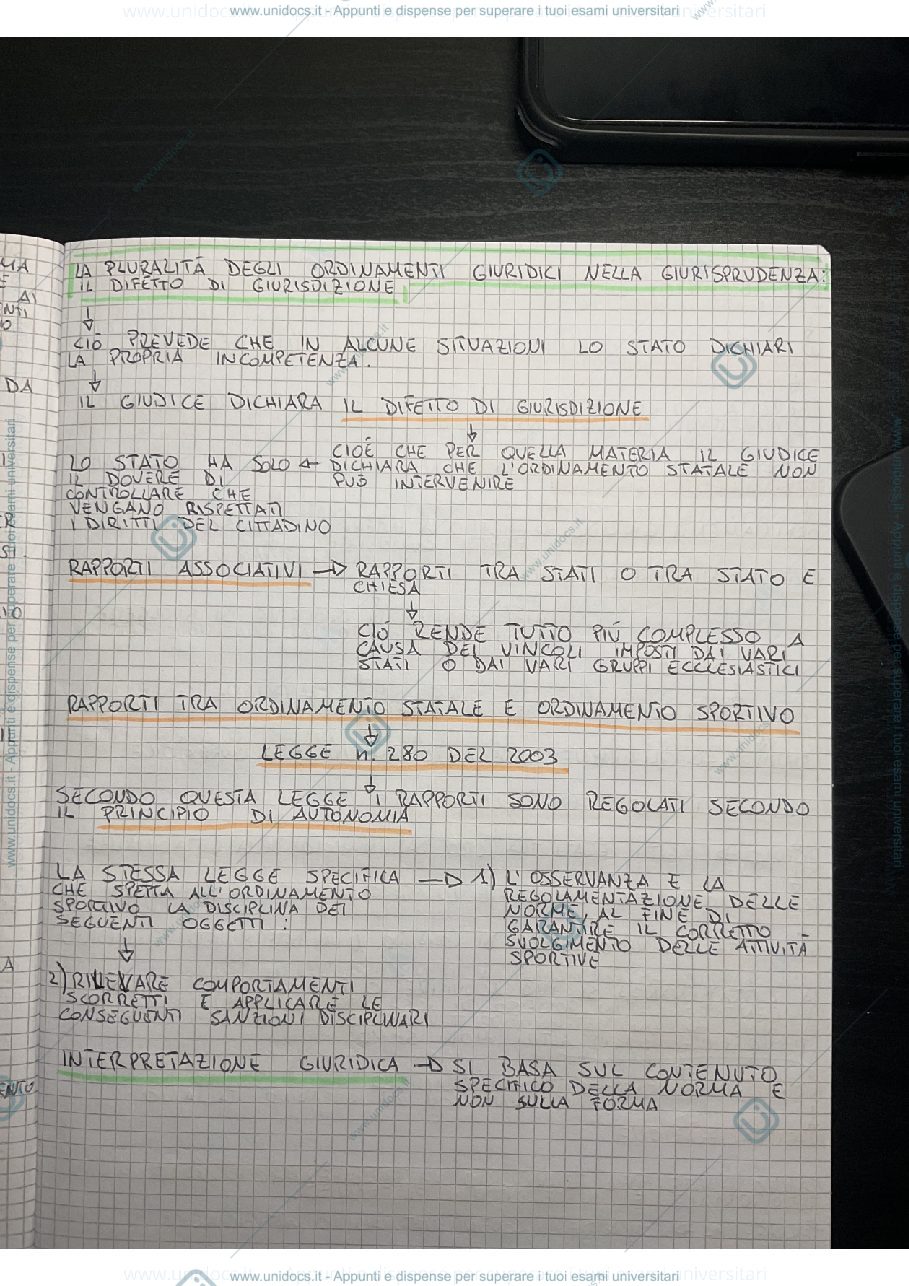 www.unidocs.it - Appunti e dispense per superare i tuoi esami universitari
LA PLURALITÁ DEGLI ORDINAMENTI GIURIDICI NELLA GIURISPRUDENZA:
IL DIFETTO DI GIURISDIZIONE
CIÓ PREVEDE CHE IN ALCUNE SITUAZIONI LO STATO DICHIARI
LA PROPRIA INCOMPETENZA.
IL GIUDICE DICHIARA IL DIFETTO DI GIURISDIZIONE
CIOÉ CHE PER QUELLA MATERIA IL GIUDICE
DICHIARA CHE L'ORDINAMENTO STATALE NON
PUÓ INTERVENIRE
LO STATO HA SOLO
IL DOVERE DI
CONTROLLARE CHE
VENGANO RISPETTATI
I DIRITTI DEL CITTADINO
RAPPORTI ASSOCIATIVI → RAPPORTI TRA STATI O TRA STATO E
CHIESA
CIÓ RENDE TUTTO PIÚ COMPLESSO A
CAUSA DEI VINCOLI IMPOSTI DAI VARI
STATI O DAI VARI GRUPPI ECCLESIASTICI
RAPPORTI TRA ORDINAMENTO STATALE E ORDINAMENTO SPORTIVO
LEGGE n. 280 DEL 2003
SECONDO QUESTA LEGGE I RAPPORTI SONO REGOLATI SECONDO
IL PRINCIPIO DI AUTONOMIA
LA STESSA LEGGE SPECIFICA →
CHE SPETTA ALL'ORDINAMENTO
SPORTIVO LA DISCIPLINA DEI
SEGUENTI OGGETTI :
1) L'OSSERVANZA E LA
REGOLAMENTAZIONE DELLE
NORME, AL FINE DI
GARANTIRE IL CORRETTO
SVOLGIMENTO DELLE ATTIVITÁ
SPORTIVE
2) RILEVARE COMPORTAMENTI
SCORRETTI E APPLICARE LE
CONSEGUENTI SANZIONI DISCIPLINARI
INTERPRETAZIONE GIURIDICA → SI BASA SUL CONTENUTO
SPECIFICO DELLA NORMA E
NON SULLA FORMA
www.unidocs.it - Appunti e dispense per superare i tuoi esami universitari